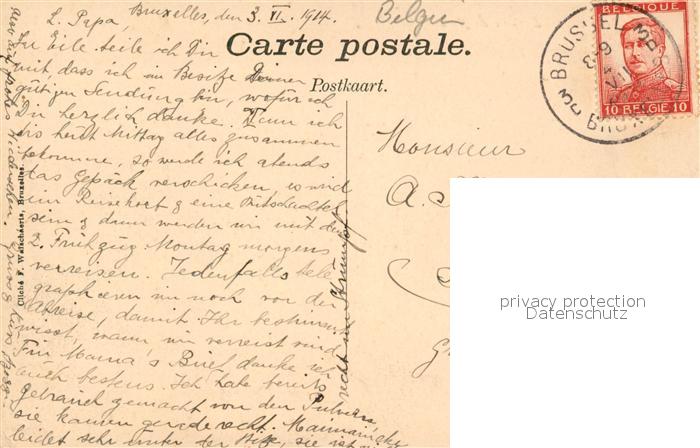 Bruxelles, den 3. VI. 1914.
Belgien
L. Papa,
Carte postale.
Postkaart.
In Eile teile ich Dir
mit, dass ich im Besitze Deiner
gütigen Sendung bin, wofür ich
Dir herzlich danke. Wenn ich
bis heut Mittag alles zusammen
bekomme, so werde ich abends
das Gepäck verschicken, es wird
ein Reisekorb & eine Hutschachtel
sein & dann werden wir mit dem
2. Frühzug Montag morgens
verreisen. Jedenfalls tele
graphieren wir noch vor der
Abreise, damit Ihr bestimmt
wisst, wann wir verreist sind
Für Mama's Brief danke ich
auch bestens. Ich habe bereits
gebrauch gemacht von den Pulvern,
sie kamen gerade recht.
leidet sehr unter der Hitze, sie ist
Also auf frohes Wiedersehen.
Cliché F. Walschaerts, Bruxelles.
Monsieur
A. S
BELGIQUE
10 BELGIE 10
BRUSSEL
privacy protection
Datenschutz